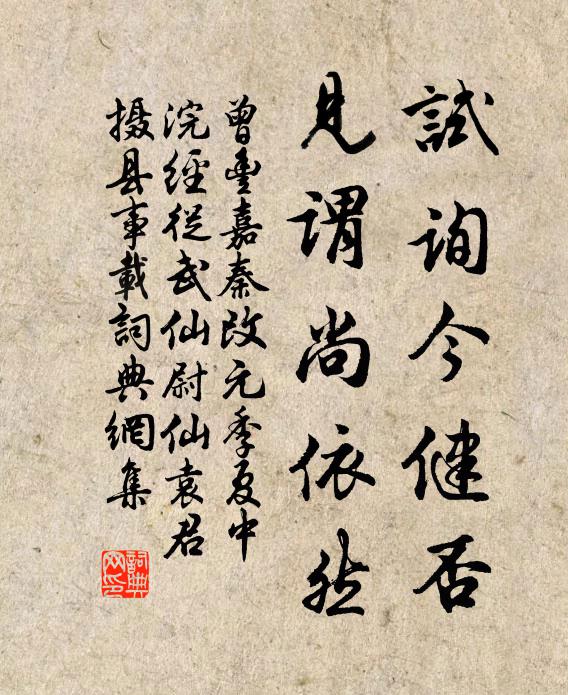 試詢今健否
見謂尚依然
曾豐嘉秦改元季夏中
浣經從武仙尉仙袁君
摄县事載詞典網集
詞典網印